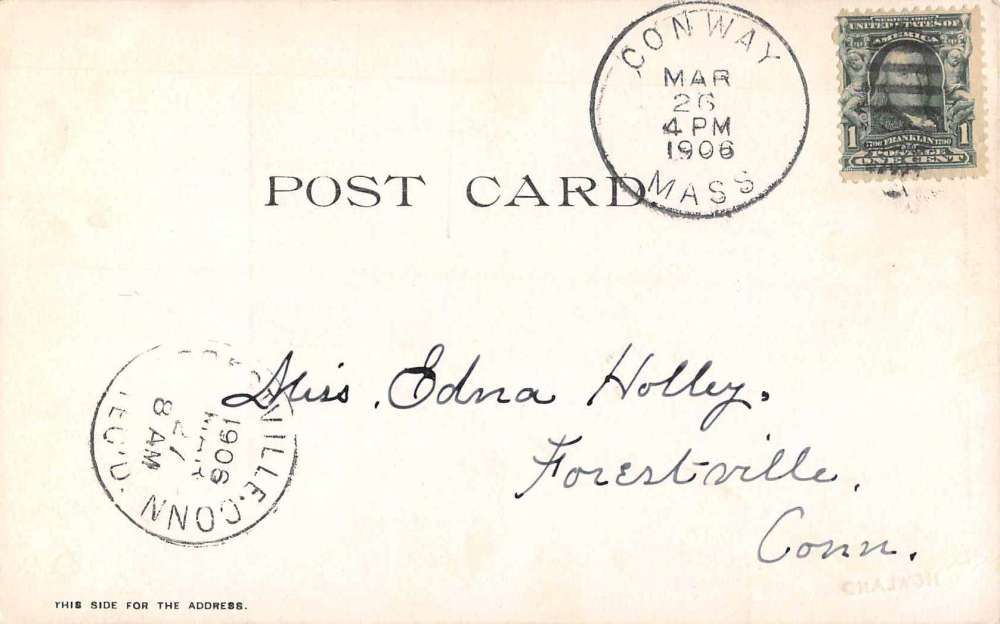 CONWAY
MAR
26
4 PM
1906
MASS
SERIES 1902
UNITED STATES OF
AMERICA
1 FRANKLIN 1
POSTAGE
ONE CENT
POST CARD.
Miss. Edna Holley.
Forestville,
Conn.
VILLE. CONN.
1906
MAR
27
8 AM
REC'D.
THIS SIDE FOR THE ADDRESS.